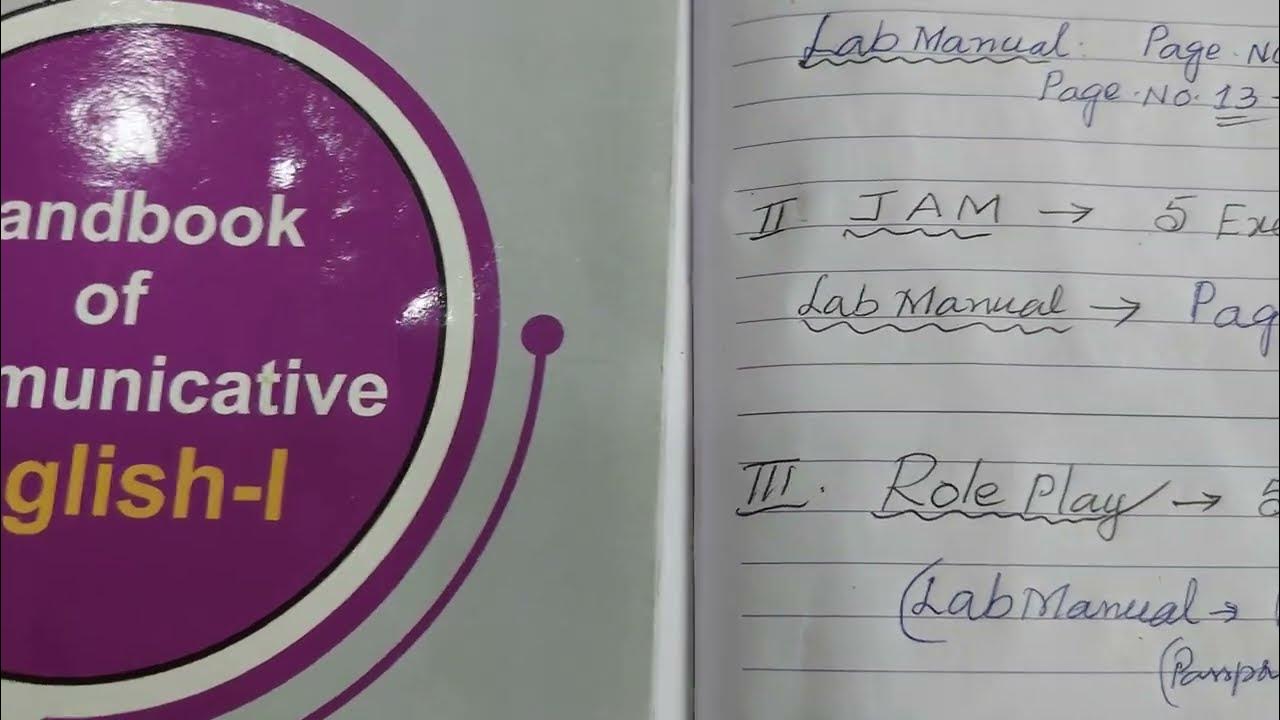 andbook
of
municative
glish-I
Lab Manual: Page. No
Page. No. 13 -
II JAM → 5 Exe
Lab Manual → Pag
III. Role Play → 5
(Lab Manual →
(Passpo